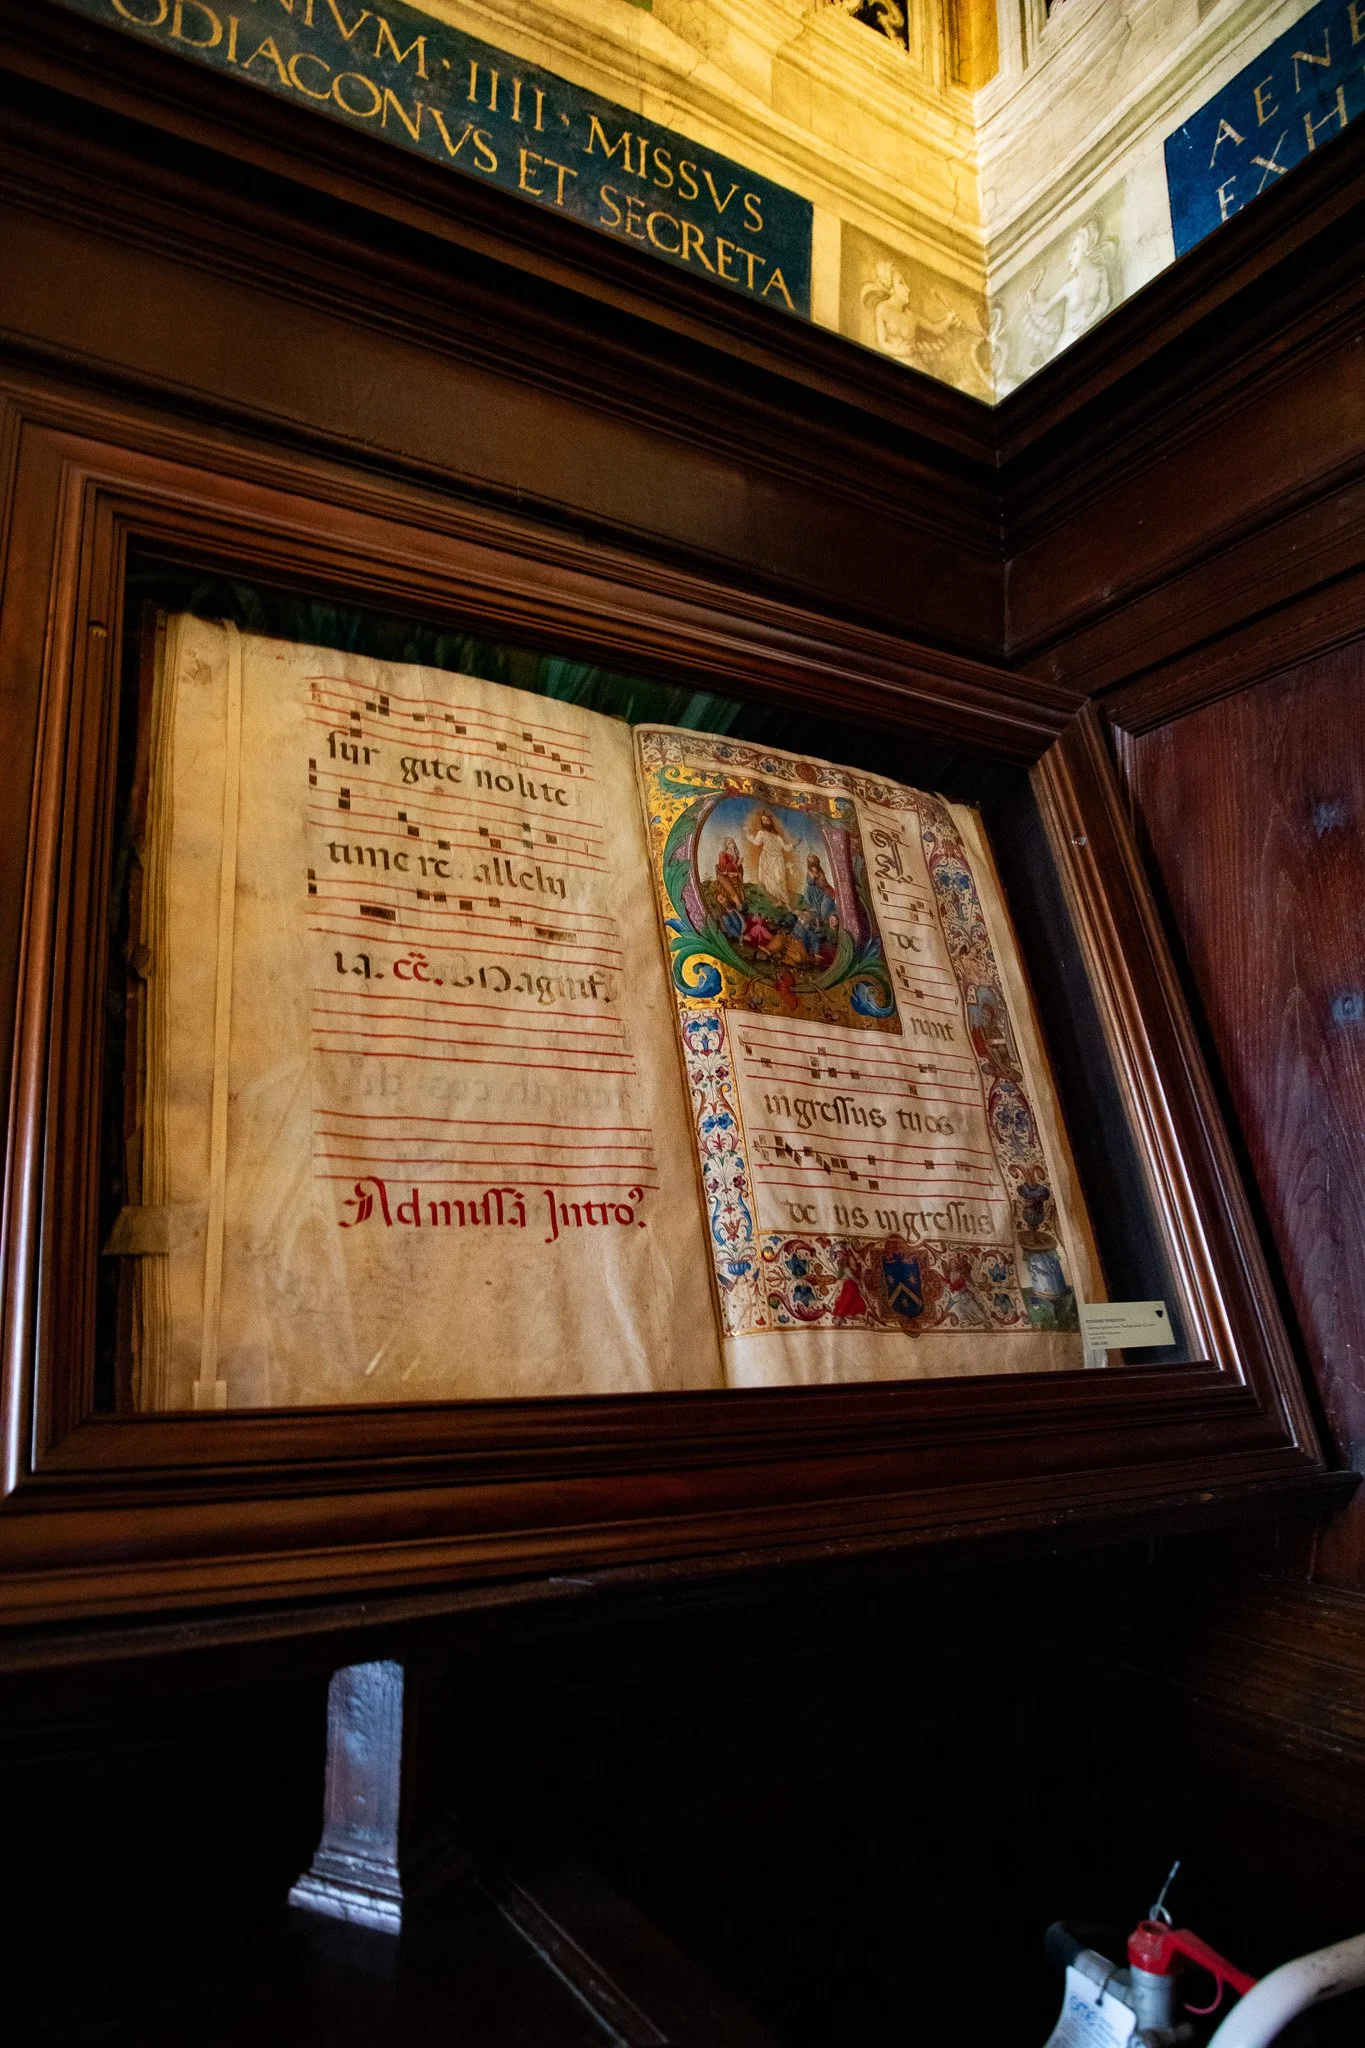 NIVM · IIII · MISSVS
ODIACONVS ET SECRETA
AENE
EXH
sur gite nolite
time re alleluj
ia. Magnif.
Ad missā Intro
de
runt
ingressus tuos
de us ingressus